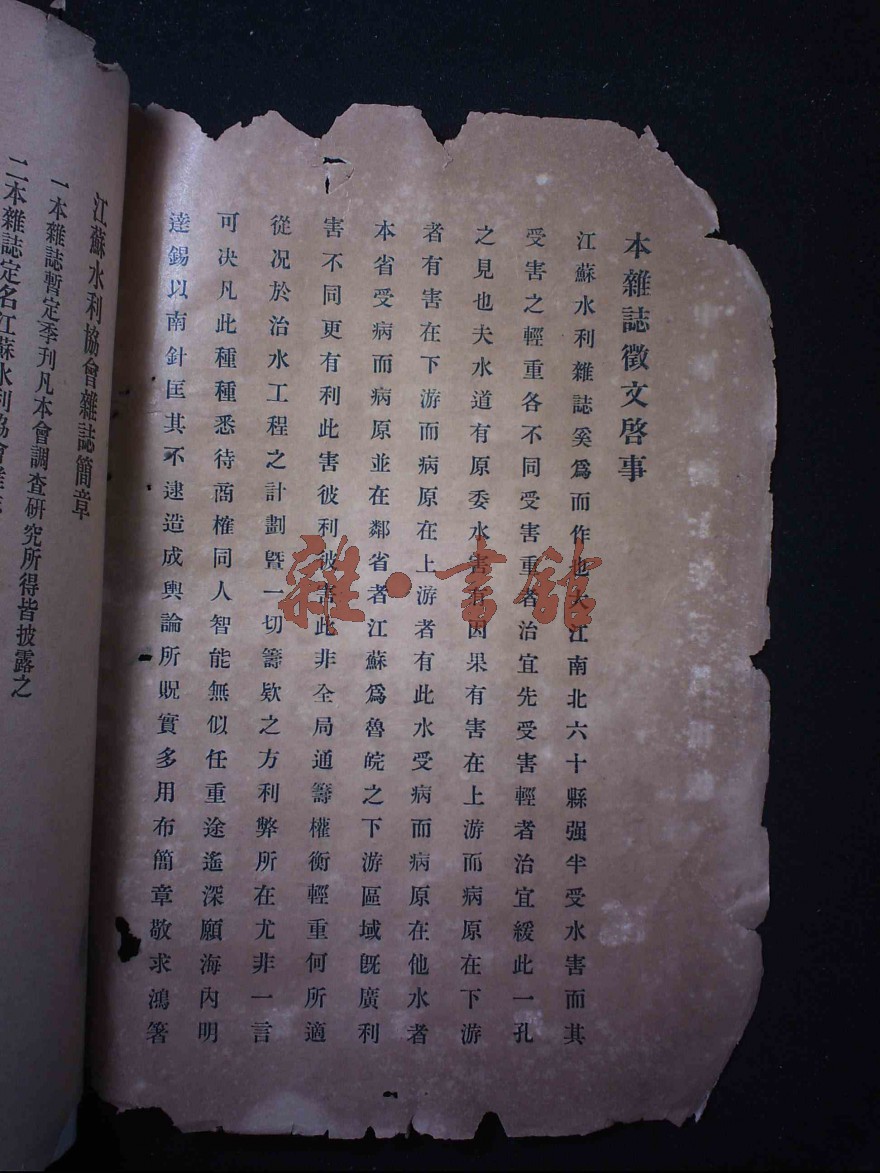 本雜誌徵文啓事
江蘇水利雜誌奚爲而作也大江南北六十縣强半受水害而其
受害之輕重各不同受害重者治宜先受害輕者治宜緩此一孔
之見也夫水道有原委水害有因果有害在上游而病原在下游
者有害在下游而病原在上游者有此水受病而病原在他水者
本省受病而病原並在鄰省者江蘇爲魯皖之下游區域旣廣利
害不同更有利此害彼利彼害此非全局通籌權衡輕重何所適
從况於治水工程之計劃曁一切籌欵之方利弊所在尤非一言
可决凡此種種悉待商榷同人智能無似任重途遙深願海內明
達錫以南針匡其不逮造成輿論所貺實多用布簡章敬求鴻箸
江蘇水利協會雜誌簡章
一本雜誌暫定季刊凡本會調查研究所得皆披露之
二本雜誌定名江蘇水利協會雜誌
雜·書舘